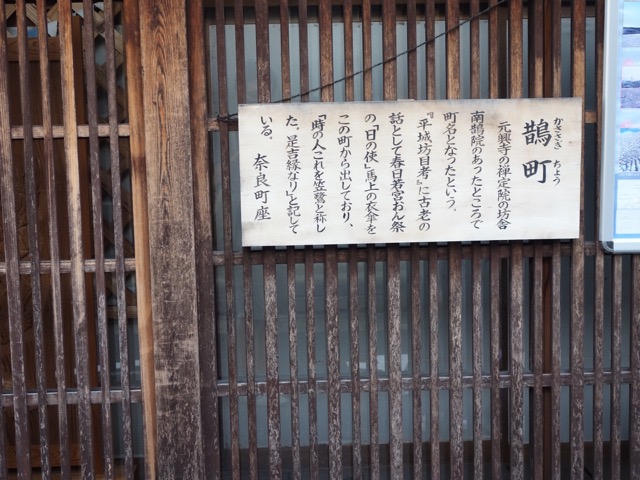 鵲町
かささぎ ちょう
元興寺の禅定院の坊舎
南鵲院のあったところで
町名となったという。
『平城坊目考』に古老の
話として春日若宮おん祭
の「日の使」馬上の衣傘を
この町から出しており、
「時の人これを笠鷺と称し
た。是吉縁なリ」と記して
いる。 奈良町座